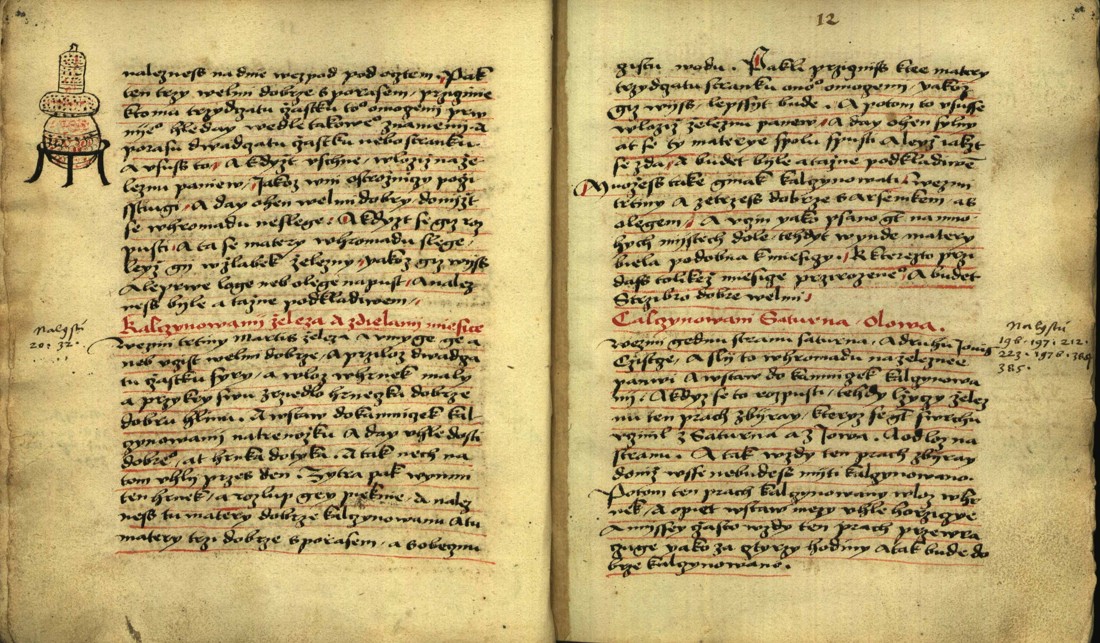 nalezness na dnie wezpod pod oiztem. Pak
ten trzy welmi dobrze s porasem, przigmie
k tomu trzydzatu žastku to° omogemi prw
nije° hleday wedle takowe° znameni. A
porasu dwadzatu žastku nebo stranku
A vsuss to, A kdyžt vschne, wložiž na že-
leznu paniew, Jakož wni ostrožnizy poži
, A day ohen welmi dobry domižt
se whromadu neslege. A kdyzt se giz roz
pusti, A ta se matery whromadu slege,
leyž gy w žlabek železny, yakož giz wijss
A leprwe loge neb olege napust, A nalez
ness bijle a tažne podkladiwem,
Kalczynowanij železa A zdielanij miesice
Wezmi trtiny Martis železa A vmyge ge a
neb vgist welmi dobrže, A prziloz dwadza
tu žastku syry, a wloz whrnek maly
a przykoy siwu zewedlo hrnezku dobrže
dobru hlinu. A wstaw do kamnižek kal-
zynowanij na trenožku A day vhle dosti
dobre°, at hrnka dotyka. A tak nech na
tom vhly przes den. Zytra pak wynmi
ten hrnek, a rozlup gey pieknie, A nalez
ness tu matery dobrze kalzynowanu A tu
matery trzi dobrze s porasem, a sobezmu
Nalysti
20. 32.
12
zistu wodu. Pakli przigniss klee matery
trzydzatu stranku ono° omogemi, yakož
giz wijss, lepssyt bude. A potom to vsusse
wložiž železnu paniew, A day ohen sylny
at se ty materye spolu spusti A leyž yakžt
se zda, A budet bijle a tažne podkladiwe
Mužess take ginak kalzynowati, wezmi
trtiny A zetržess dobrže s arsemkem, as
olegem, A vzin yako psano gt na mno-
hych mijstech dole, tehdyt wynde matery
biela podobna k miesizy. K kterezto przi
dass tolikež miesize przirozene°, A budet
Strzibro dobre welmi,
Calczynowani Saturna, Olowa.
Wezmi gednu stranu saturna, A druhu Jowis
Czistge, A slij to whromadu na železnee
panwi A wstaw do kamnižek kalzynowa
ni. A kdyz se to rozpusti, tehdy lžyzy želez
nu ten prach zbijray, kteryz se gt swrchu
vzinil z Saturna a z Jowa. A odloz na
stranu. A tak wzdy ten prach zbijray
doniž wsse nebudess mijti kalzynowano.
Potom ten prach kalzynowany wloz whr
nek, A opiet wstaw mezy vhle horžizye
A missey žasto wzdy ten prach przewra
zuge yako za ztyrzy hodiny A tak bude do
brze kalzynowano.
Nalystu
196. 197. 212.
223. 1976. 384
385.